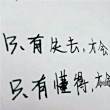 只有失去，才会
只有懂得，才会